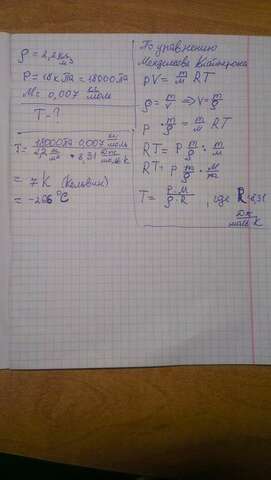 ρ = 2,2 кг/м³
P = 18 кПа = 18000 Па
M = 0,007 кг/моль
T - ?
T = 18000 Па · 0,007 кг/моль / 2,2 кг/м³ · 8,31 Дж/моль·К
= 7 К (Кельвин)
= -266 °C
По уравнению
Менделеева Клапейрона
pV = m/M RT
ρ = m/V ⇒ V = m/ρ
p · m/ρ = m/M RT
RT = p m/ρ · M/m
T = p·M/ρ·R , где R = 8,31
Дж/моль·К